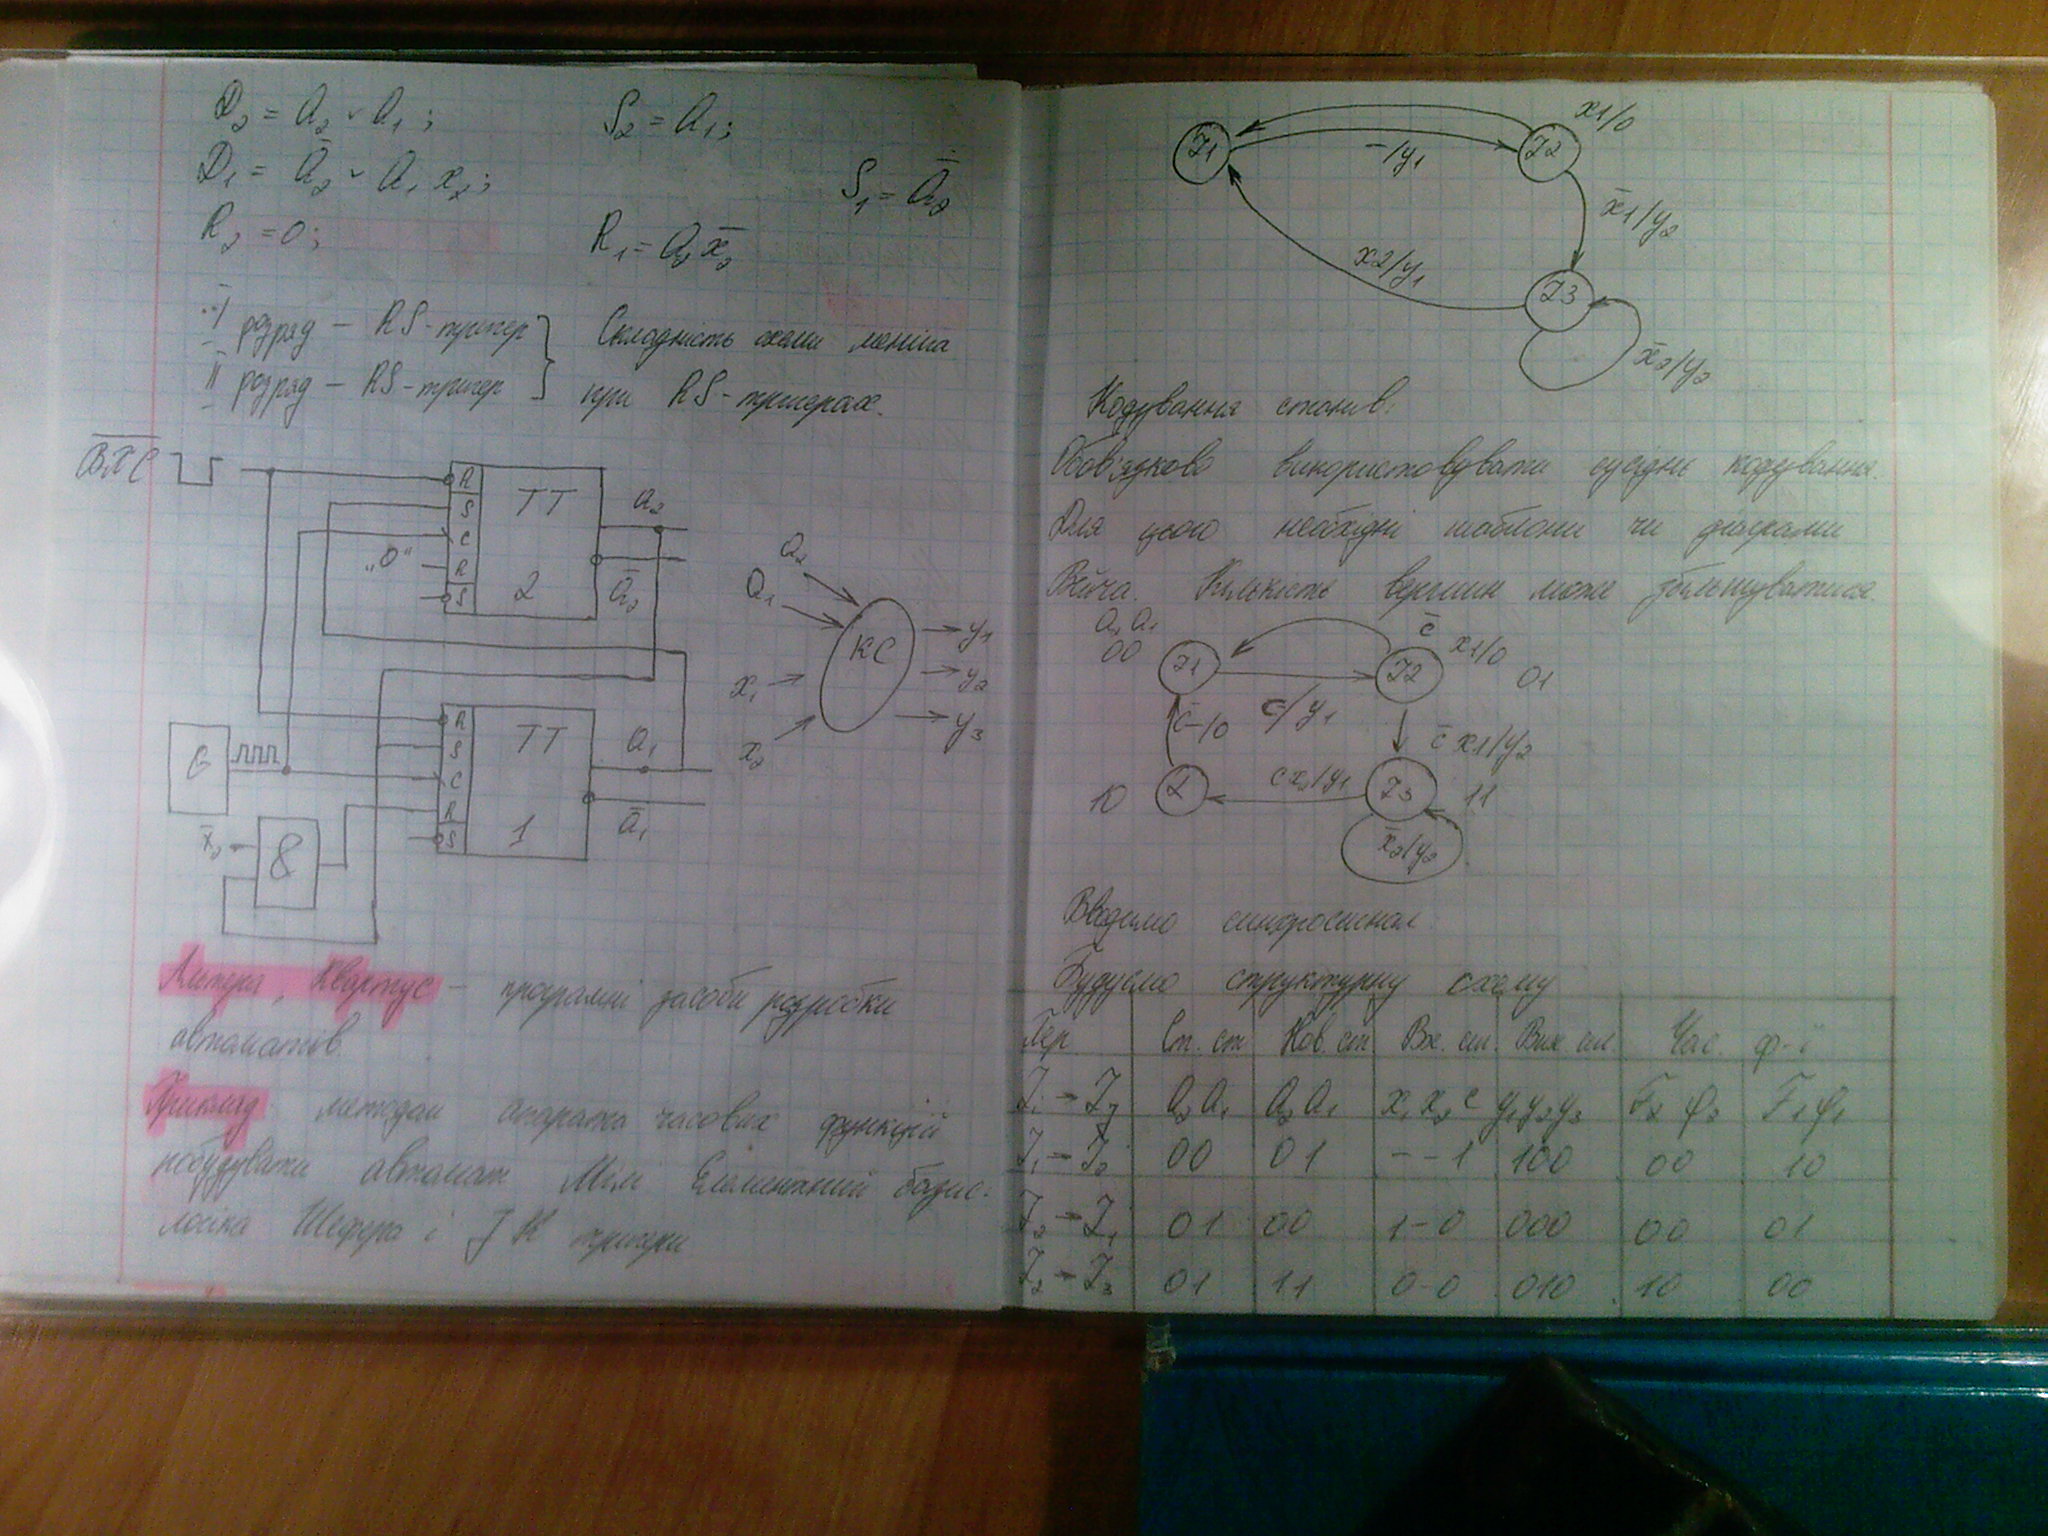 D₂ = a₂ ∨ a₁ ; S₂ = a₁;
D₁ = a̅₂ ∨ a₁ x₂; S₁ = a̅₂
R₂ = 0; R₁ = a₂ x̅₂
I розряд – RS-тригер } Складність схеми менша
II розряд – RS-тригер } при RS-тригерах.
R
S
C
"0" R
S
TT
2
a₂
a̅₂
a₂
a₁
x₁
x₂
КС
y₁
y₂
y₃
G
R
S
C
R
S
TT
1
a₁
a̅₁
x̅₂
&
Альтера, Квартус – програмні засоби розробки
автоматів.
Приклад: методом апарата часових функцій
побудувати автомат Мілі. Елементний базис:
логіка Шефера і JK тригери
Z1
Z2
x1/0
–/y₁
x̅1/y₂
x2/y₁
Z3
x̅₂/y₂
Кодування станів:
Обов'язково використовувати сусіднє кодування.
Для цього необхідні шаблони чи діаграми
Вейча. Кількість вершин може збільшуватися.
a₂ a₁
00
Z1
Z2
c̅
x1/0
01
c/y₁
c̅–/0
c̅ x1/y₂
10
cx₂/y₁
Z3
11
x̅₂/y₂
Вводимо синхросигнал.
Будуємо структурну схему
Пер. Ст. ст Нов. ст Вх. сиг. Вих. сиг. Час. ф-ї
Zᵢ → Zⱼ a₂ a₁ a₂ a₁ x₁ x₂ c y₁y₂y₃ F₂ φ₂ F₁ φ₁
Z₁ → Z₂ 00 01 – – 1 100 00 10
Z₂ → Z₁ 01 00 1 – 0 000 00 01
Z₂ → Z₃ 01 11 0 – 0 010 10 00